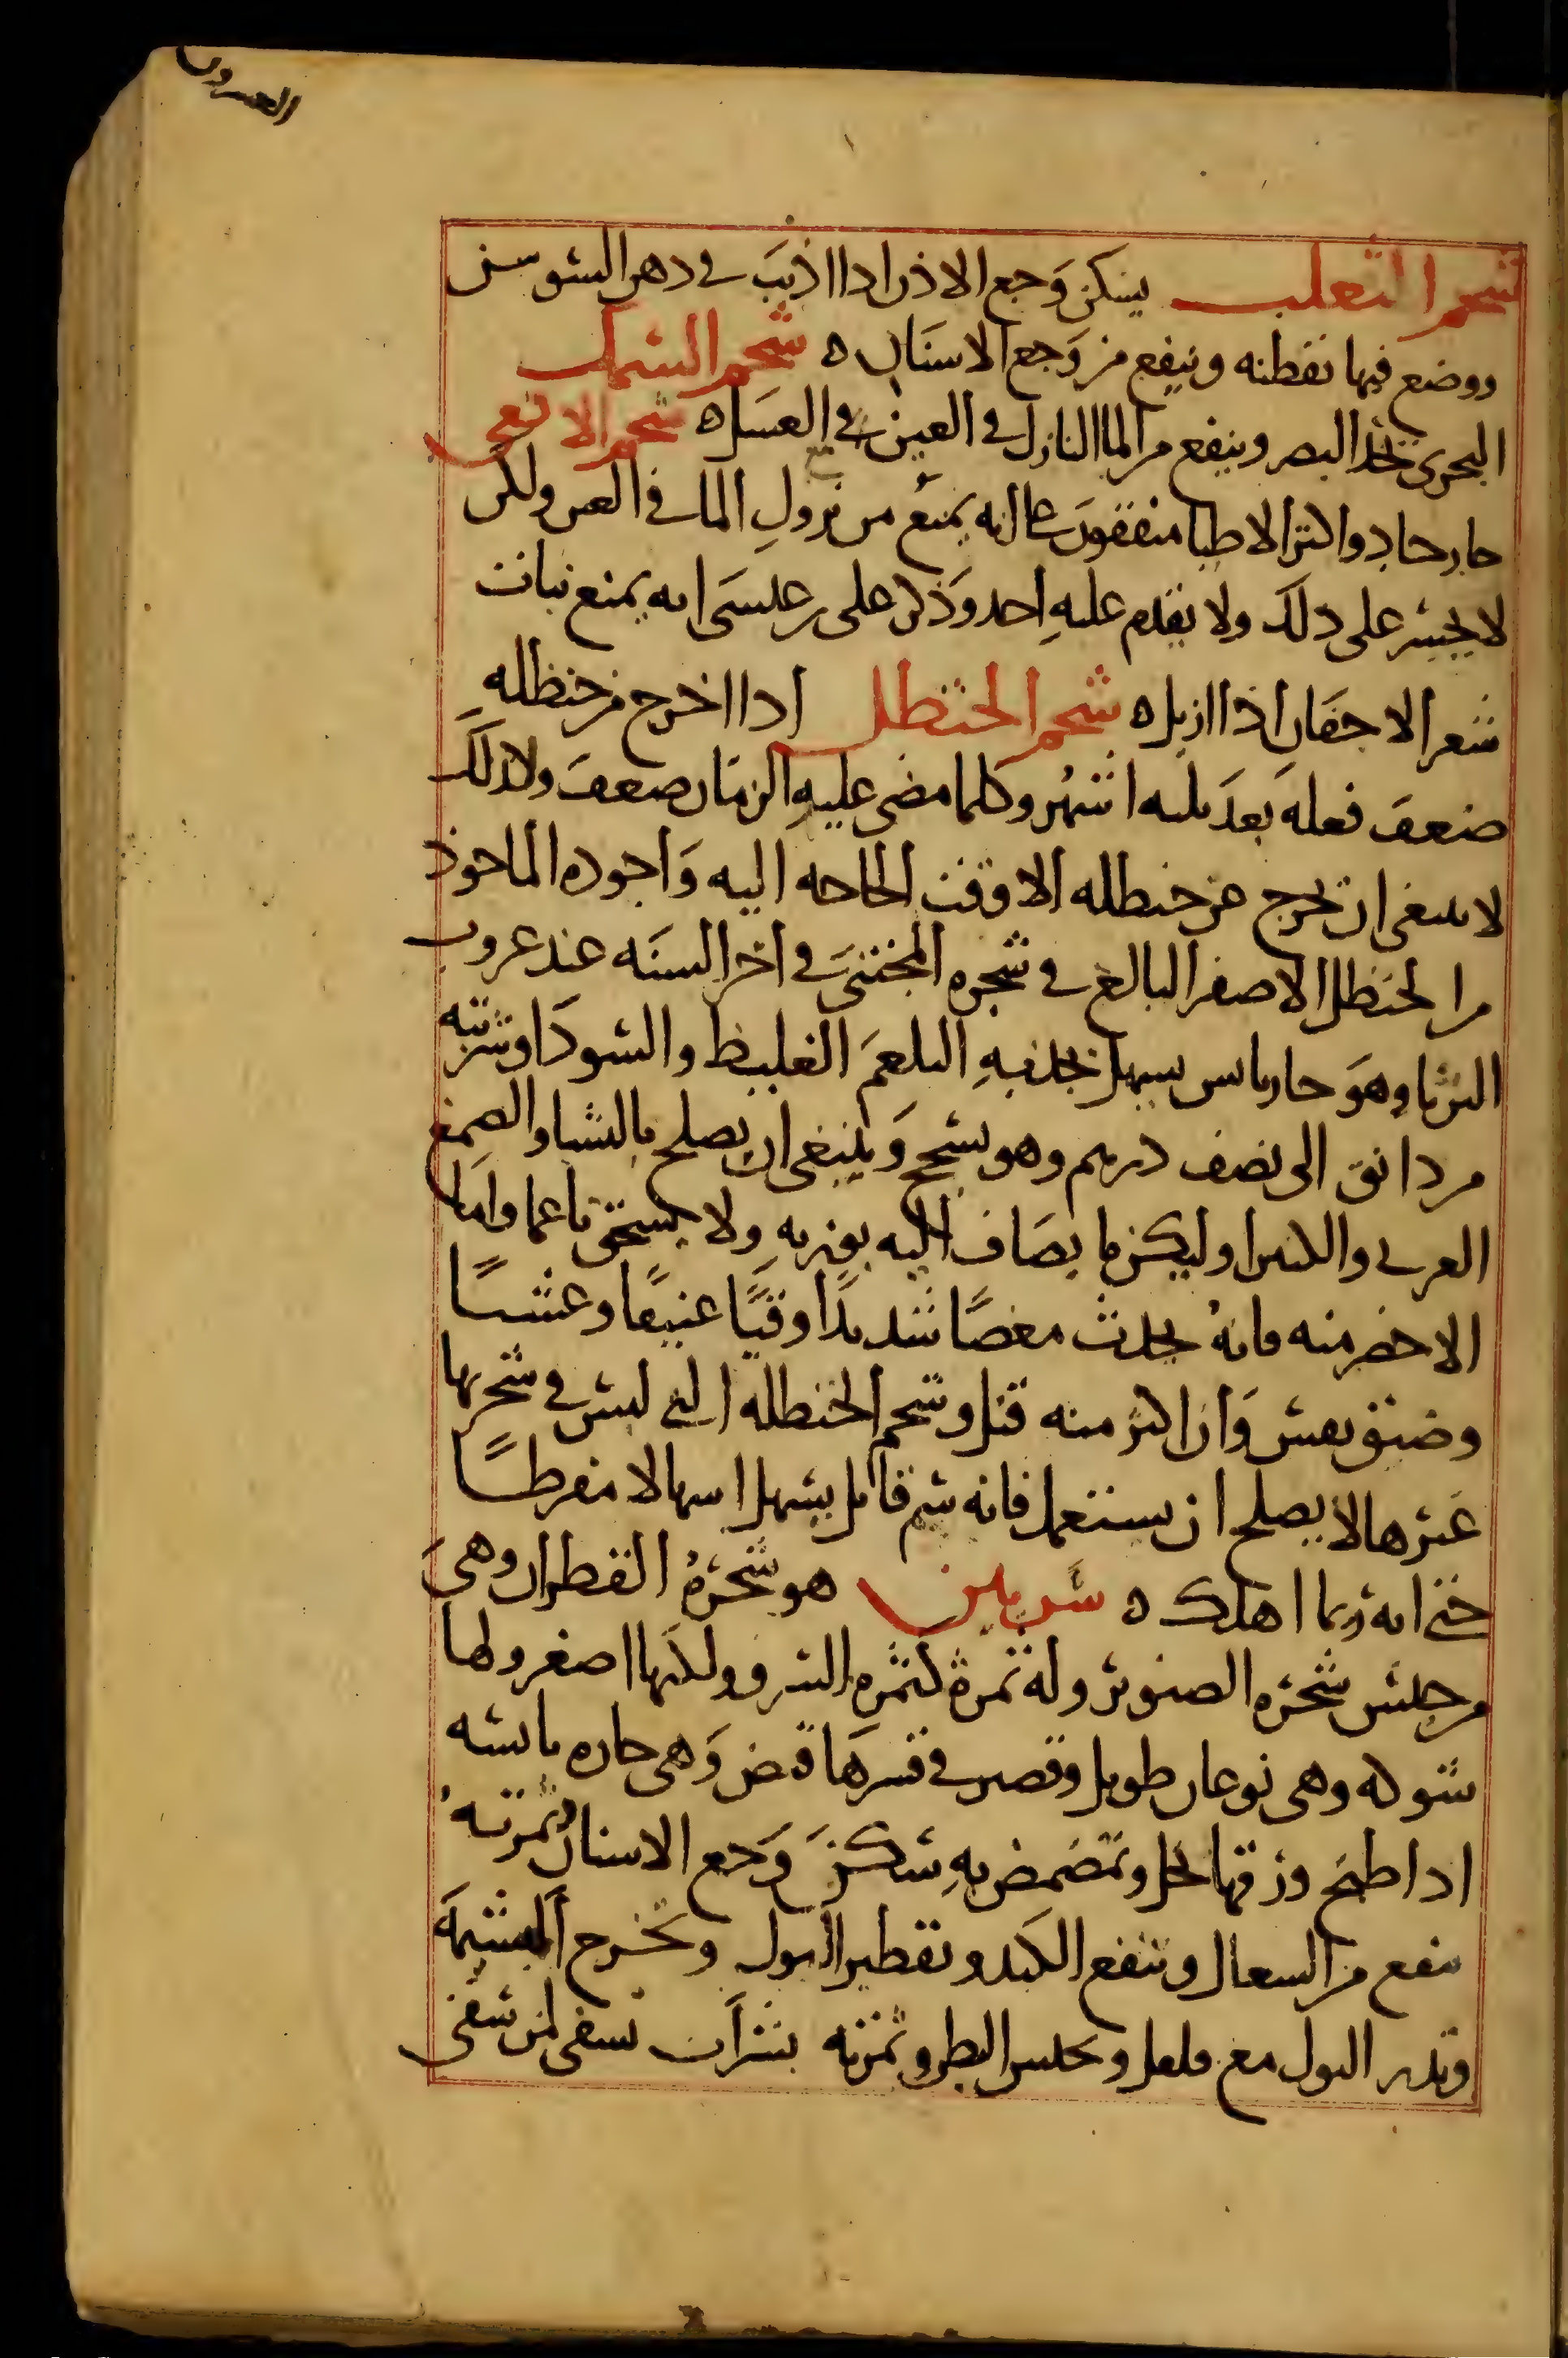 العسرون
شحم الثعلب يسكن وجع الاذن اذا اذيب في دهن السوسن
ووضع فيها نقطنه وينفع من وجع الاسنان ه شحم السمك
البحري يحد البصر وينفع من الما النازل في العين مع العسل ه شحم الافعى
حار حاد واكثر الاطبا متفقون على انه يمنع من نزول الما في العين ولكن
لا يجسر على ذلك ولا يقدم عليه احد وذكر على بن عيسى انه يمنع نبات
شعر الاجفان اذا ازيل ه شحم الحنظل اذا اخرج من حنظله
ضعف فعله بعد ثلثه اشهر وكلما مضى عليه الزمان ضعف ولذلك
لا ينبغي ان يخرج من حنظله الا وقت الحاجه اليه واجوده الماخوذ
من الحنظل الاصفر البالغ في شجره المجتنى في اخر السنه عند غروب
الثريا وهو حار يابس يسهل بجذبه البلغم الغليظ والسودا وشربته
من دانق الى نصف درهم وهو يسحج وينبغي ان يصلح بالنشا والصمغ
العربي والكثيرا وليكن ما يضاف اليه بوزنه ولا يسحق ناعما واما
الاخضر منه فانه يحدث مغصًا شديدًا وقيًا عنيفًا وغشيًا
وضيق نفس وان اكثر منه قتل وشحم الحنظله التي ليس في شجرتها
غيرها لا يصلح ان يستعمل فانه سم قاتل يسهل اسهالا مفرطًا
حتى انه ربما اهلك ه شربين هو شجرة القطران وهي
من جنس شجره الصنوبر وله ثمرة كثمره السرو ولكنها اصغر ولها
شوك وهي نوعان طويل وقصير في قشرها قبض وهي حاره يابسه
اذا طبخ ورقها بخل وتمضمض به سكن وجع الاسنان وثمرته
تنفع من السعال وتنفع الكبد وتقطير البول وتخرج المشيمة
وتدر البول مع فلفل وتحبس البطن وثمرته بشراب تسقى لمن سقى